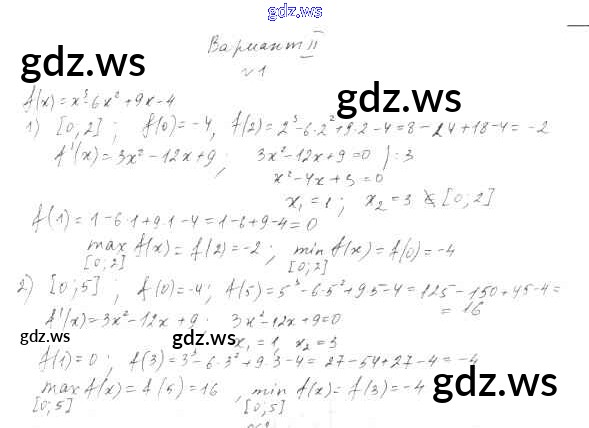 gdz.ws
Вариант II
gdz.ws
№1
gdz.ws
f(x)=x³-6x²+9x-4
1) [0;2]; f(0)=-4, f(2)=2³-6·2²+9·2-4=8-24+18-4=-2
f'(x)=3x²-12x+9; 3x²-12x+9=0 |:3
x²-4x+3=0
x₁=1; x₂=3 ∉ [0;2]
f(1)=1-6·1+9·1-4=1-6+9-4=0
max f(x)=f(2)=-2; min f(x)=f(0)=-4
[0;2] [0;2]
2) [0;5]; f(0)=-4; f(5)=5³-6·5²+9·5-4=125-150+45-4=
=16
f'(x)=3x²-12x+9; 3x²-12x+9=0
gdz.ws gdz.ws x₁=1, x₂=3
f(1)=0; f(3)=3³-6·3²+9·3-4=27-54+27-4=-4
max f(x)=f(5)=16, min f(x)=f(3)=-4
[0;5] [0;5]
gdz.ws